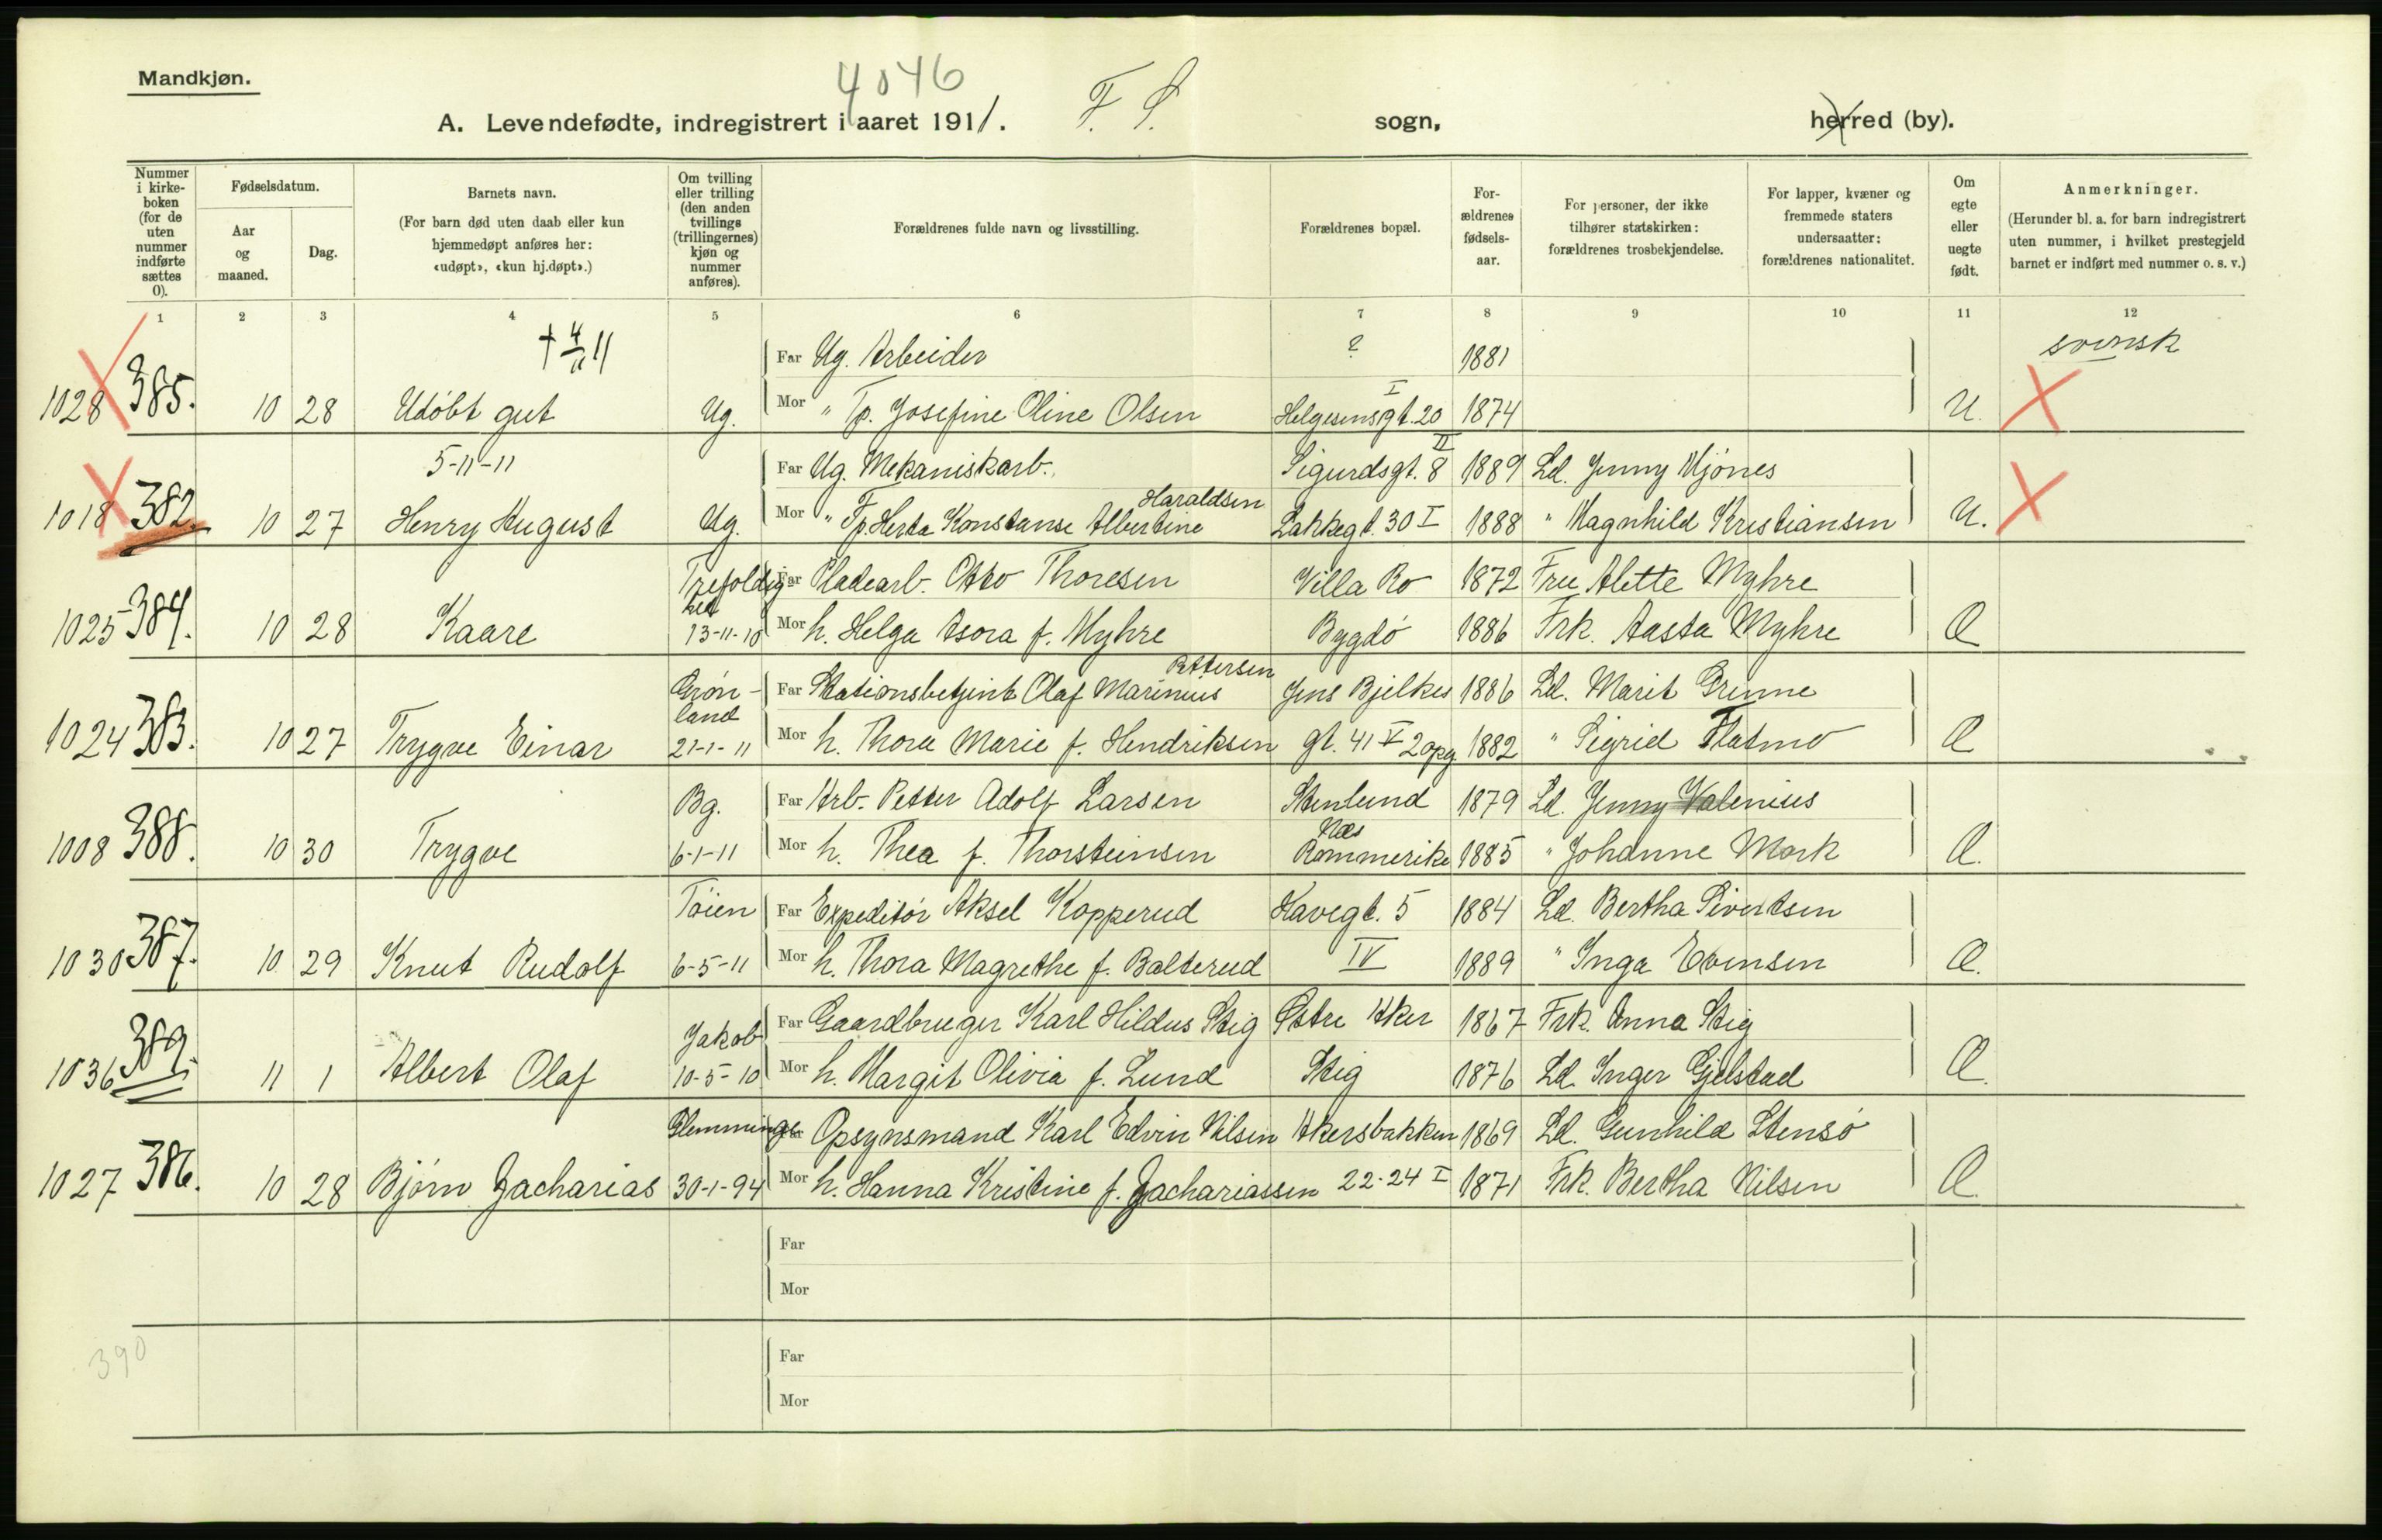 Mandkjøn.
4046
A. Levendefødte, indregistrert i aaret 1911. F. S. sogn, herred (by).
Nummer i kirke-boken (for de uten nummer indførte sættes 0).
Fødselsdatum.
Aar og maaned.
Dag.
Barnets navn.
(For barn død uten daab eller kun hjemmedøpt anføres her: «udøpt», «kun hj.døpt».)
Om tvilling eller trilling (den anden tvillings (trillingernes) kjøn og nummer anføres).
Forældrenes fulde navn og livsstilling.
Forældrenes bopæl.
For-ældrenes fødsels-aar.
For personer, der ikke tilhører statskirken: forældrenes trosbekjendelse.
For lapper, kvæner og fremmede staters undersaatter: forældrenes nationalitet.
Om egte eller uegte født.
Anmerkninger.
(Herunder bl. a. for barn indregistrert uten nummer, i hvilket prestegjeld barnet er indført med nummer o. s. v.)
1 2 3 4 5 6 7 8 9 10 11 12
† 4/11 11 Far Ug. Arbeider ? 1881 svensk
1028 385. 10 28 Udöbt gut Ug. Mor " Tp. Josefine Oline Olsen Helgesensgt. 20 I 1874 U.
5-11-11 Far Ug. Mekaniskarb. Sigurdsgt. 8 II 1889 Ld. Jenny Mjönes
1018 382. 10 27 Henry August Ug. Mor " Fp. Herta Konstanse Albertine Haraldsen Lakkegt. 30 I 1888 " Magnhild Kristiansen U.
Trefoldighed Far Pladearb. Otto Thoresen Villa Ro 1872 Fru Alette Myhre
1025 384. 10 28 Kaare 13-11-10 Mor h. Helga Asora f. Myhre Bygdö 1886 Frk. Aasta Myhre Æ
Grönland Far Stationsbetjent Olaf Marinius Pettersen Jens Bjelkes 1886 Ld. Marit Grinne
1024 383. 10 27 Trygve Einar 21-1-11 Mor h. Thora Marie f. Hendriksen gt. 41 V 2 opg. 1882 " Sigrid Flatmo Æ
Bg. Far Arb. Petter Adolf Larsen Stenlund 1879 Ld. Jenny Valenius
1008 388. 10 30 Trygve 6-1-11 Mor h. Thea f. Thorsteinsen Næs Rommerike 1885 " Johanne Mork Æ.
Töien Far Expeditör Aksel Kopperud Havegt. 5 1884 Ld. Bertha Sivertsen
1030 387. 10 29 Knut Rudolf 6-5-11 Mor h. Thora Magrethe f. Balterud IV 1889 " Inga Evensen Æ.
Jakob Far Gaardbruger Karl Hildus Stig Østre Aker 1867 Frk. Anna Stig
1036 389. 11 1 Albert Olaf 10-5-10 Mor h. Margit Olivia f. Lund Stig 1876 Ld. Inger Gjelstad Æ.
Glemminge Far Opsynsmand Karl Edvin Nilsen Akersbakken 1869 Ld. Gunhild Stensö
1027 386. 10 28 Björn Zacharias 30-1-94 Mor h. Hanna Kristine f. Zachariassen 22-24 I 1871 Frk. Bertha Nilsen Æ.
Far
Mor
390 Far
Mor